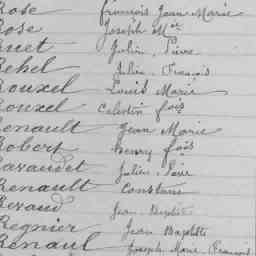 Rose François Jean Marie
Rose Joseph Mie
Ruet Julien, Pierre
Rehel Julien, François
Rouxel Louis Marie
Rouxel Celestin fois
Renault Jean Marie
Robert Henry fois
Ravaudet Julien, Pierre
Renault Constant
Regnier Jean Baptiste
Renaul Joseph Marie François